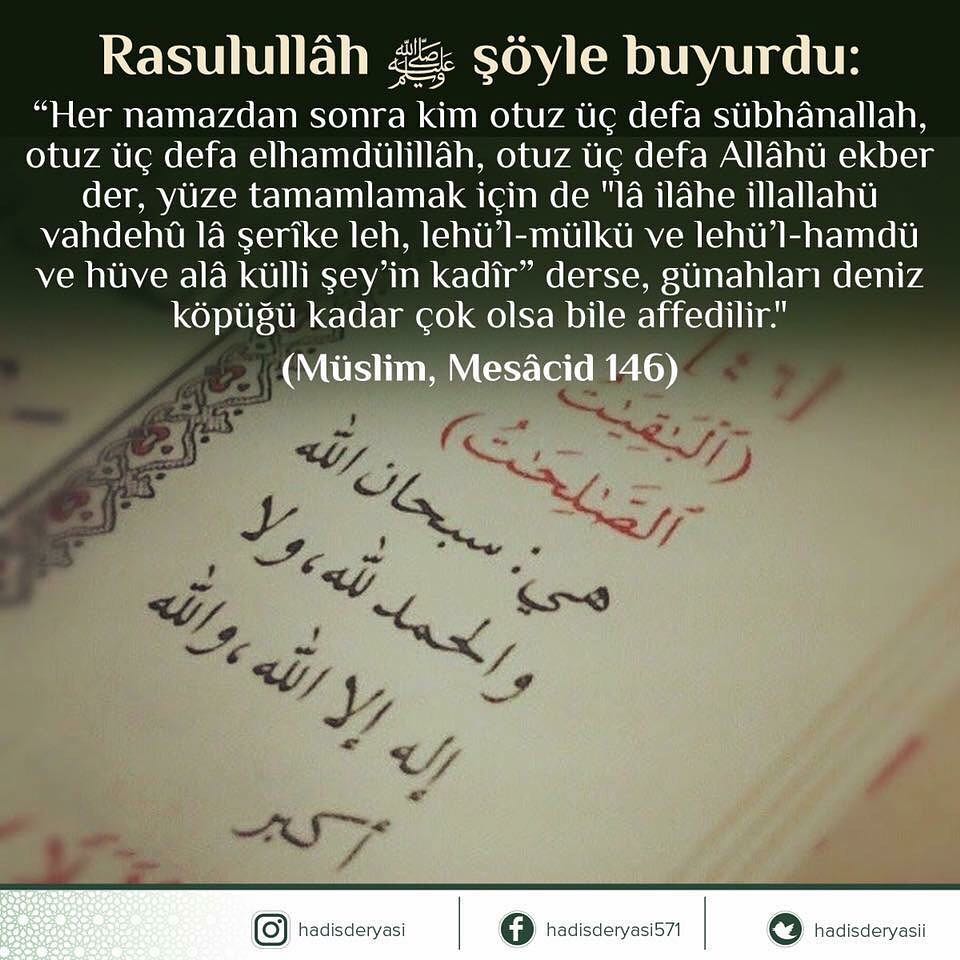 Rasulullâh ﷺ şöyle buyurdu:
“Her namazdan sonra kim otuz üç defa sübhânallah,
otuz üç defa elhamdülillâh, otuz üç defa Allâhü ekber
der, yüze tamamlamak için de "lâ ilâhe illallahü
vahdehû lâ şerîke leh, lehü’l-mülkü ve lehü’l-hamdü
ve hüve alâ külli şey’in kadîr” derse, günahları deniz
köpüğü kadar çok olsa bile affedilir."
(Müslim, Mesâcid 146)
(ٱلْبَٰقِيَٰتُ
ٱلصَّٰلِحَٰتُ)
هي: سبحان الله
والحمد لله، ولا
إله إلا الله، والله
أكبر
hadisderyasi
hadisderyasi571
hadisderyasii